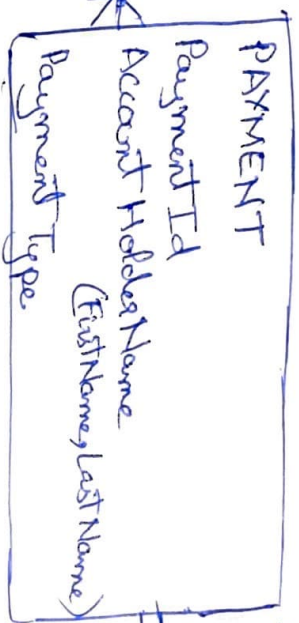 PAYMENT
Payment Id
Account Holder Name
(First Name, Last Name)
Payment Type